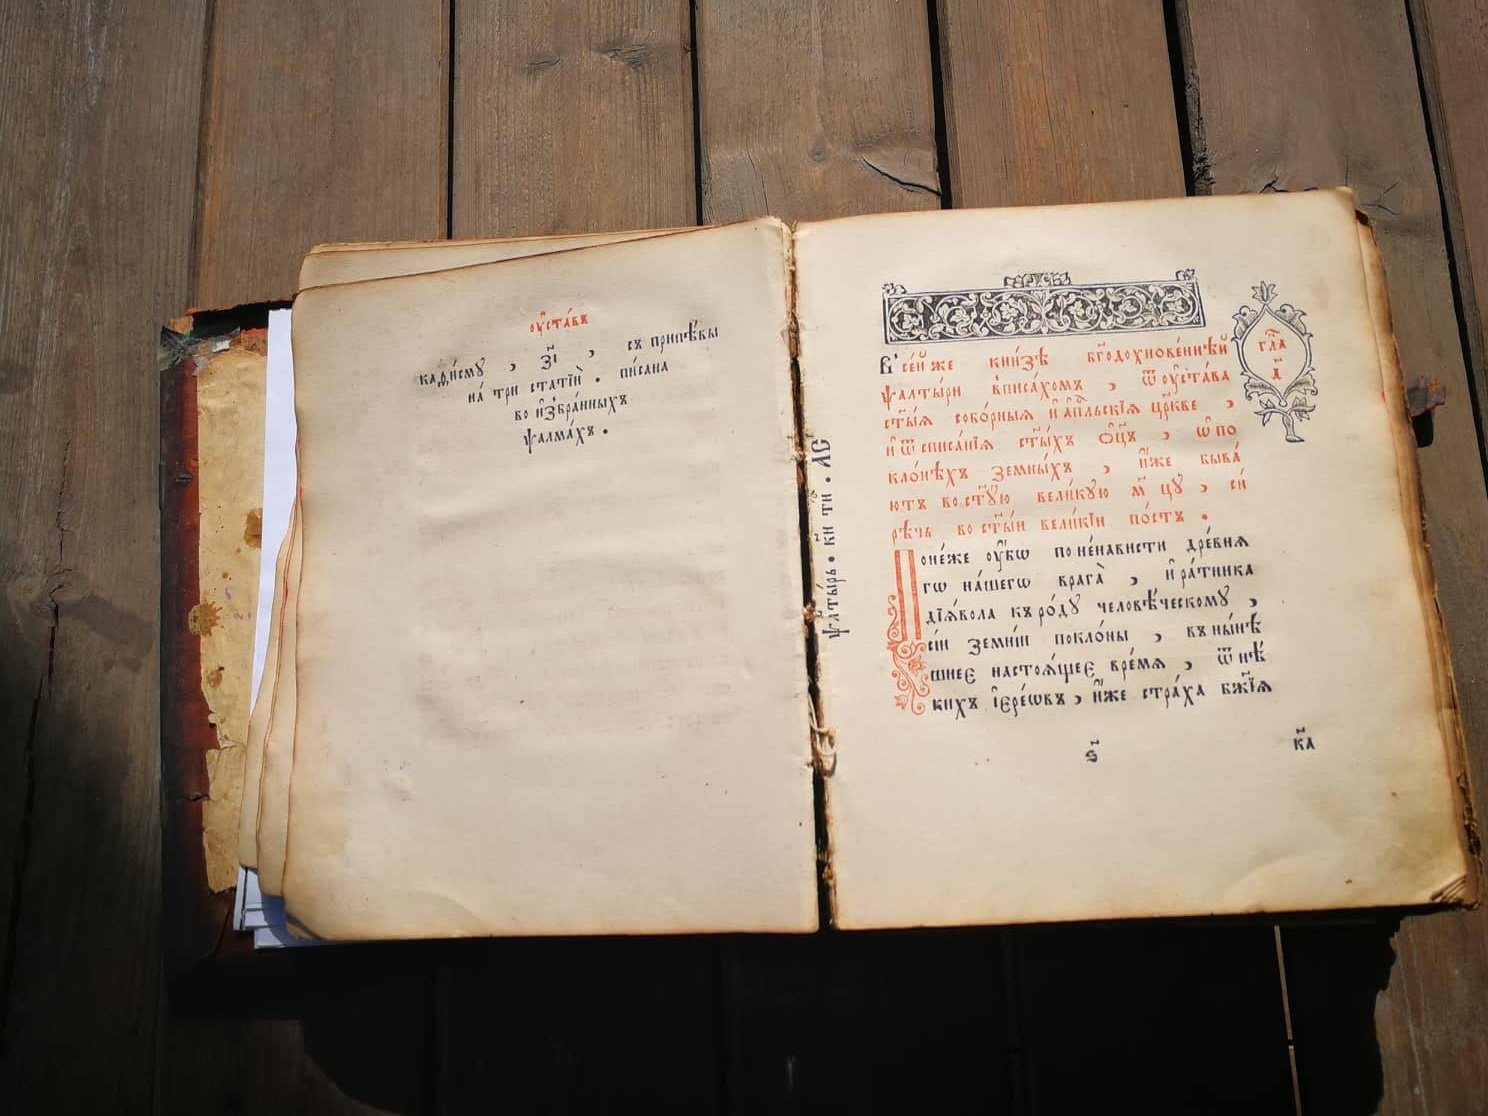 ᲂу҆ста́въ
каѳи́сму , з҃і , съ припѣ́вы
на́ три статїѝ . пи́сана
во и҆збра́нныхъ
ѱалма́хъ .
ѱлты́рь . кн тн . ЛС
гла҃
а҃
В̾ се́йже кни́зѣ бг҃одохнове́ннѣй
ѱалты́ри вписа́хомъ , ѿ ᲂу҆ста́ва
ст҃ы́ѧ собо́рныѧ и҆ а҆пⷭ҇льскїѧ цр҃кве ,
и҆ ѿ списа́нїѧ ст҃ы́хъ ѻ҆ц҃ъ , ѡ҆ по
кло́нѣхъ земны́хъ , и҆́же быва́
ютъ во ст҃у́ю вели́кую м҃ цу , си́
рѣчь во ст҃ы́и вели́кїи по́стъ .
Поне́же ᲂу҆́бѡ по не́нависти дре́внѧ
гѡ на́шегѡ врага̀ , и҆ ра́тника
дїѧ́вола къ ро́ду человѣ́ческому ,
сїи́ земні́и покло́ны , въ ны́нѣ
шнее настоѧ́щее вре́мѧ , ѿ нѣ́
кихъ і҆ере́ѡвъ , и҆̀же стра́ха бж҃їѧ
ѕ҃
к҃а